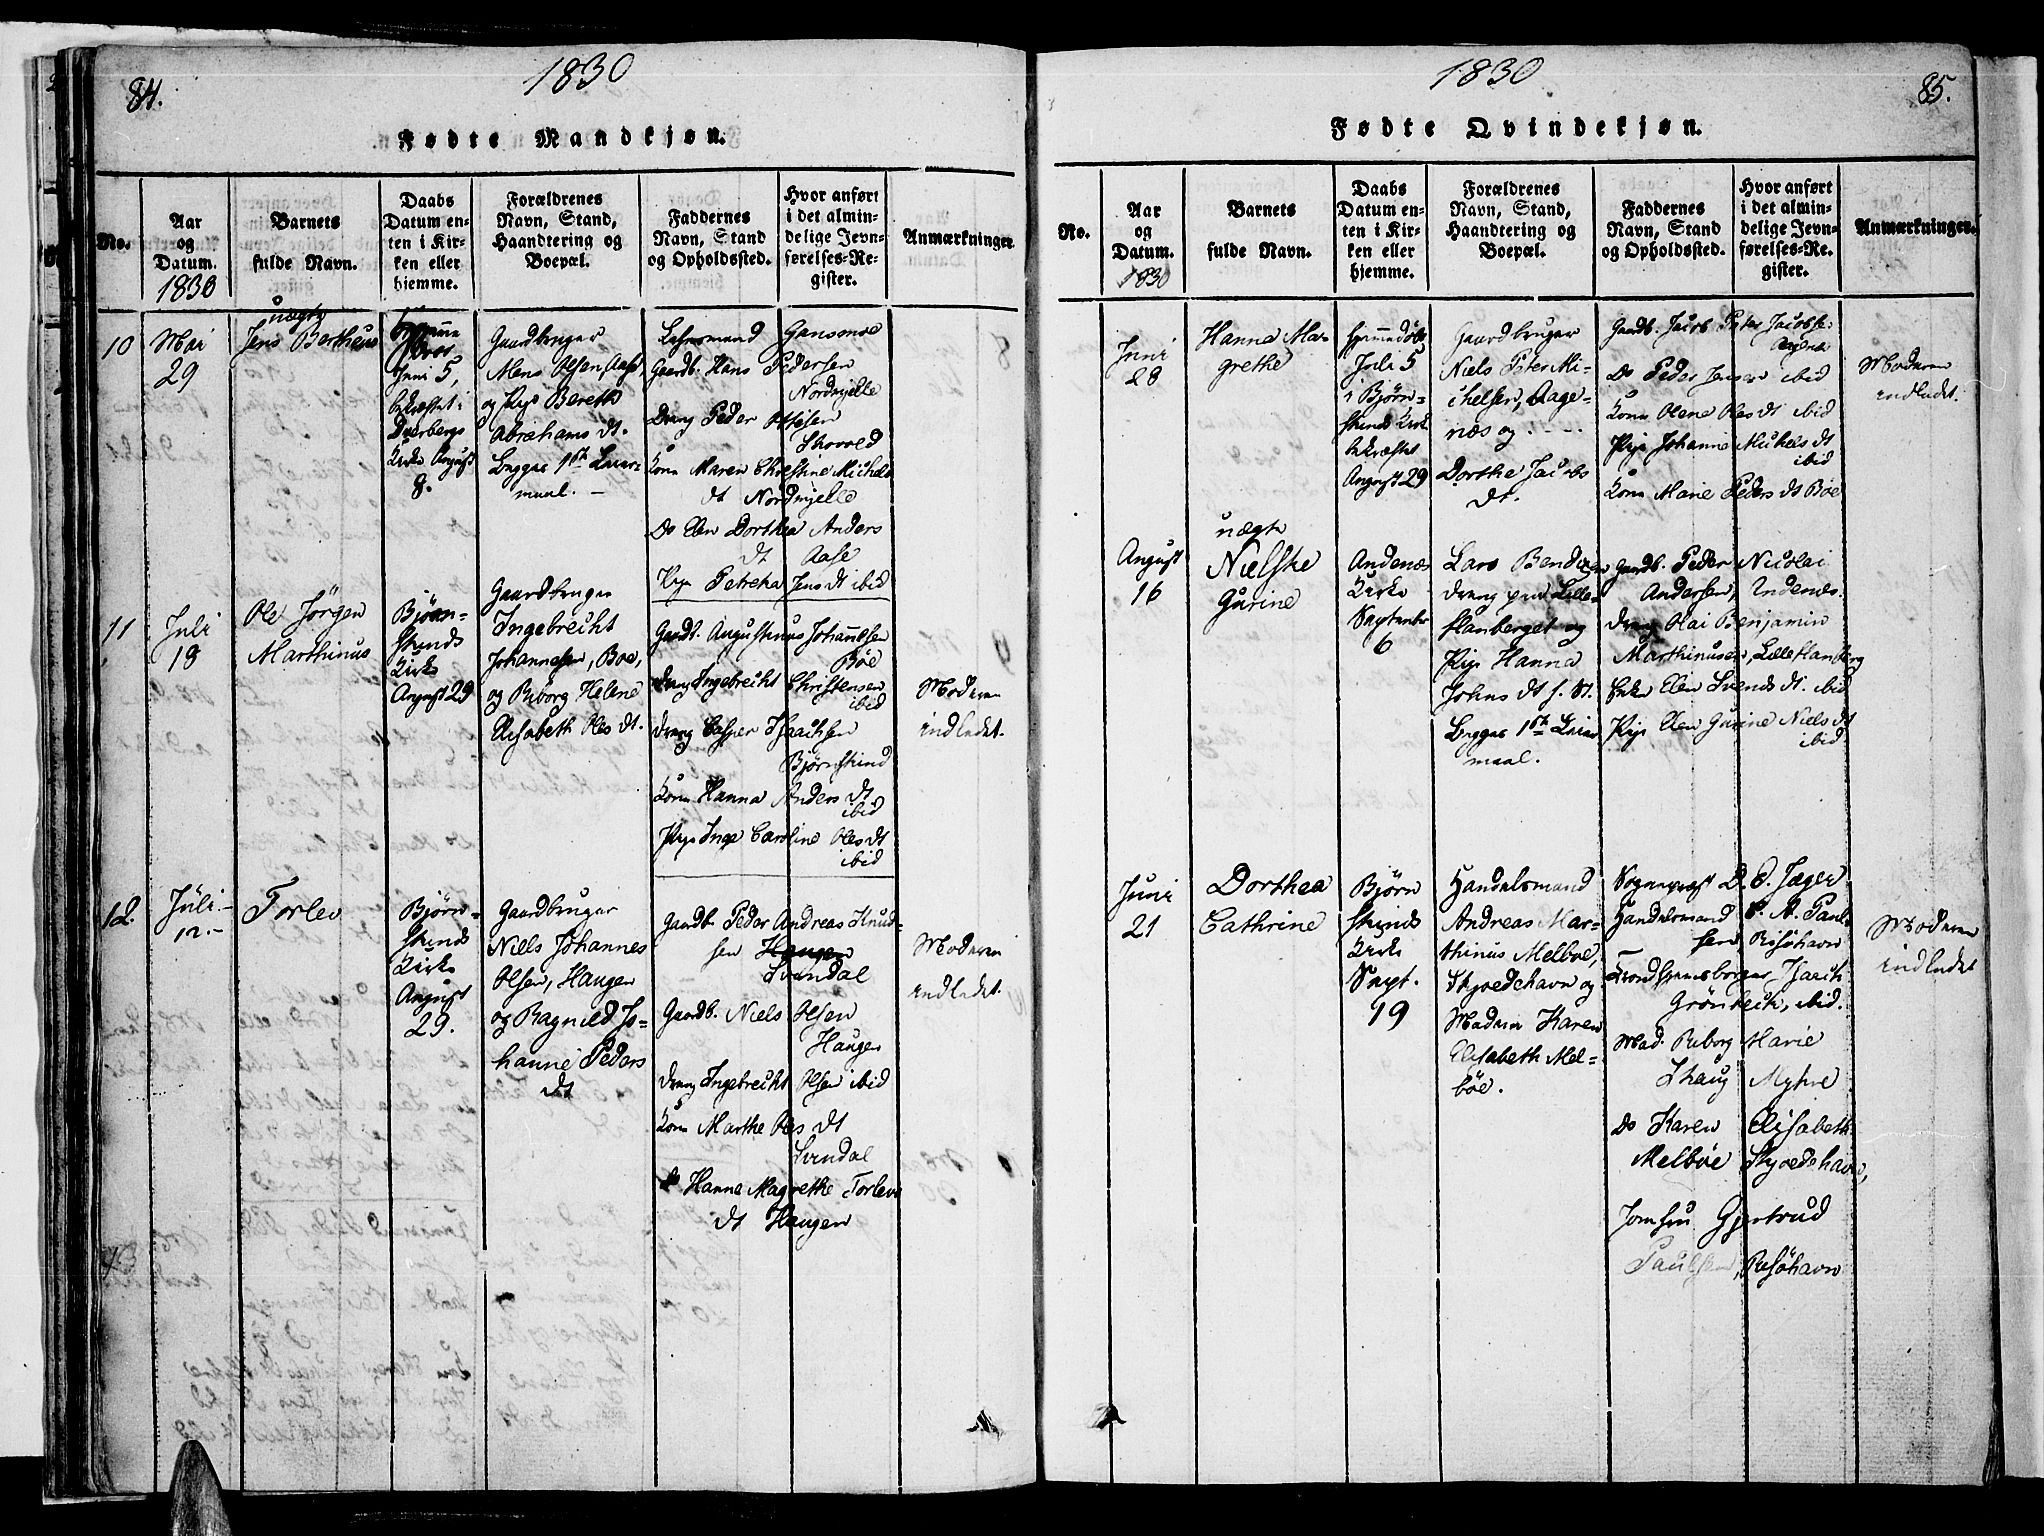 84.
1830
Fødte Mandkjøn.
No.
Aar
og
Datum.
1830
Barnets
fulde Navn.
Daabs
Datum en-
ten i Kir-
ken eller
hjemme.
Forældrenes
Navn, Stand,
Haandtering og
Boepæl.
Faddernes
Navn, Stand
og Opholdssted.
Hvor anført
i det almin-
delige Jevn-
førelses-Re-
gister.
Anmærkninger
10
Mai
29
uægte
Jens Bertheus
Juni 5,
bekræftet i
Dverbergs
Kirke August
8.
Gaardbruger
Mons Olsen, Aase,
og Pige Bereth
Abrahams dt.
Begges 1ste Leier-
maal. —
Lehnsmand
Gaardb. Hans Pedersen
Nordmjelle
Dreng Peder Ottesen
Skovold
Kone Maren Christine Michels
dt Nordmjelle
Do Elen Dorthea Anders
dt Aase
Pige Petrcha Jens dt ibid
11
Juli
18
Ole Jörgen
Marthinus
Bjørn-
skinds
Kirke
August 29
Gaardbruger
Ingebrecht
Johannesen, Boe,
og Riborg Helene
Elisabeth Oles dt.
Gaardb. Augustinus Johannesen
Böe
Dreng Ingebrecht Christensen
ibid
Dreng Casper Isachsen
Bjørnskind
Kone Hanna Anders dt
ibid
Pige Inge Caroline Oles dt
ibid
Moderen
indledet.
12.
Juli.—
12.—
Torlev
Bjørn-
skinds
Kirke
August
29.
Gaardbruger
Niels Johannes
Olsen, Haugen
og Ragnild Jo-
hanne Peders
dt
Gaardb. Peder Andreas Knud-
sen Haugen
Svindal
Gaardb. Niels Olsen
Haugen
Dreng Ingebrecht Olsen ibid
Kone Marthe Oles dt
Svindal
Do Hanna Magrethe Torlevs
dt Haugen
Moderen
indledet.
85.
1830
Fødte Qvindekjøn.
No.
Aar
og
Datum.
1830
Barnets
fulde Navn.
Daabs
Datum en-
ten i Kir-
ken eller
hjemme.
Forældrenes
Navn, Stand,
Haandtering og
Boepæl.
Faddernes
Navn, Stand
og Opholdssted.
Hvor anført
i det almin-
delige Jevn-
førelses-Re-
gister.
Anmærkninger.
Juni
28
Hanna Ma-
grethe
Hjemmedöbt
Juli 5
i Bjørn-
skinds Kirke
bekræftet
August 29
Gaardbruger
Niels Peter Mi-
chelsen, Aage-
næs og
Dorthe Jacobs
dt.
Gaardb. Jacob Peter Jacobse.
Do Peder Jensen ibid
Kone Olene Oles dt ibid
Pige Johanna Mickels dt
ibid
Kone Marie Peders dt Böe
Moderen
indledet.
August
16
uægte
Nielske
Gurine
Andenæs
Kirke
September
6
Lars Bendixen
dreng paa Lille-
flanberget og
Pige Hanna
Johns dt s. St.
Begges 1ste Leier
maal.
Gaardb. Peder Nicolai
Andersen, Andenes.
Dreng Olai Benjamin
Marthinusen, Lilleflanberg
Enke Elen Svends dt. ibid
Pige Elen Gurine Niels dt
ibid
Juni
21
Dorthea
Cathrine
Bjørn
skinds
Kirke
Sept.
19
Handelsmand
Andreas Mar-
thinus Melböe,
Skjoldehavn og
Madam Karen
Elisabeth Mel-
böe.
Sogneprest D. C. Jæger
Handelsmand P. A. Paul-
sen Risöhavn
Trondhjemsborger Isach
Grönbech, ibid.
Mad. Riborg Marie
Skaug Myhre
Do Karen Elisabeth
Melböe Skjoldehavn,
Jomfru Gjertrud
Paulsen, Risöhavn
Moderen
indledet